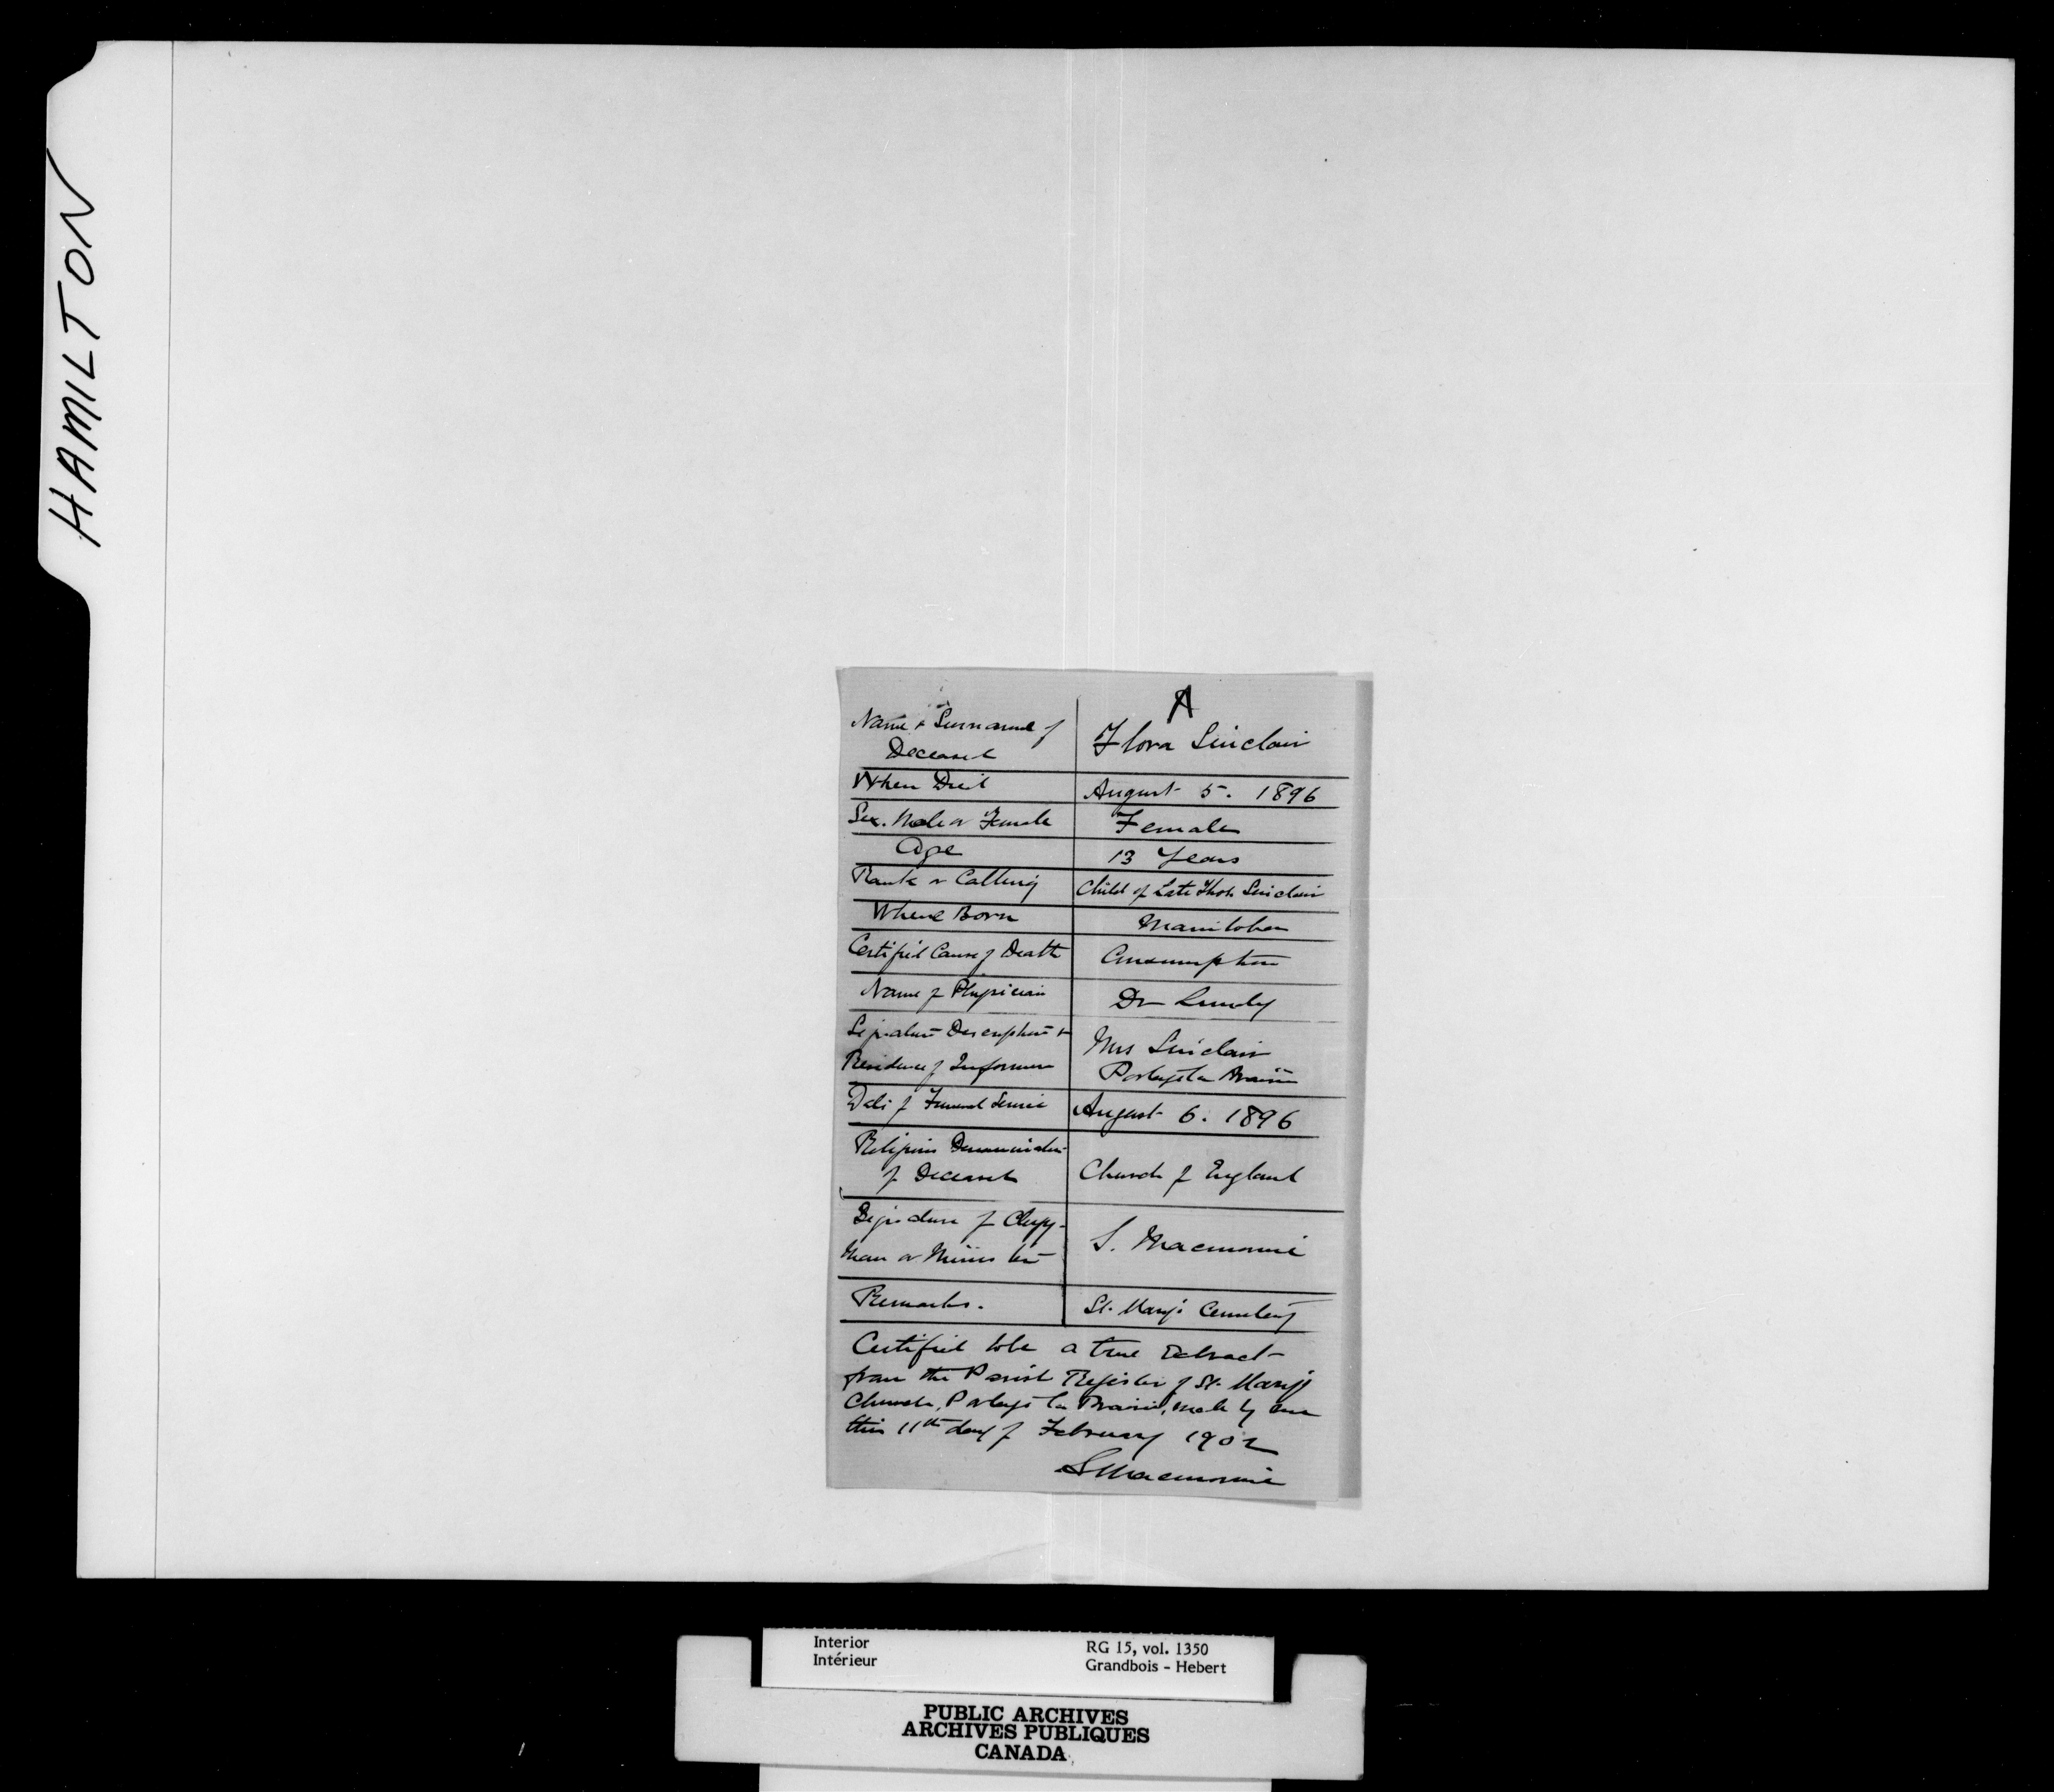 HAMILTON
A
Name & Surname of
Deceased
Flora Sinclair
When Died
August 5. 1896
Sex. Male or Female
Female
Age
13 Years
Rank or Calling
Child of Late Thos Sinclair
Where Born
Manitoba
Certified Cause of Death
Consumption
Name of Physician
Dr Lundy
Signature Description &
Residence of Informer
Mrs Sinclair
Portage la Prairie
Date of Funeral Service
August 6. 1896
Religious Denomination
of Deceased
Church of England
Signature of Clergy-
man or Minister
S. Macmorine
Remarks.
St. Mary's Cemetery
Certified to be a true Extract
from the Parish Register of St. Mary's
Church, Portage la Prairie, made by me
this 11th day of February 1902
S Macmorine
Interior
Intérieur
RG 15, vol. 1350
Grandbois - Hebert
PUBLIC ARCHIVES
ARCHIVES PUBLIQUES
CANADA